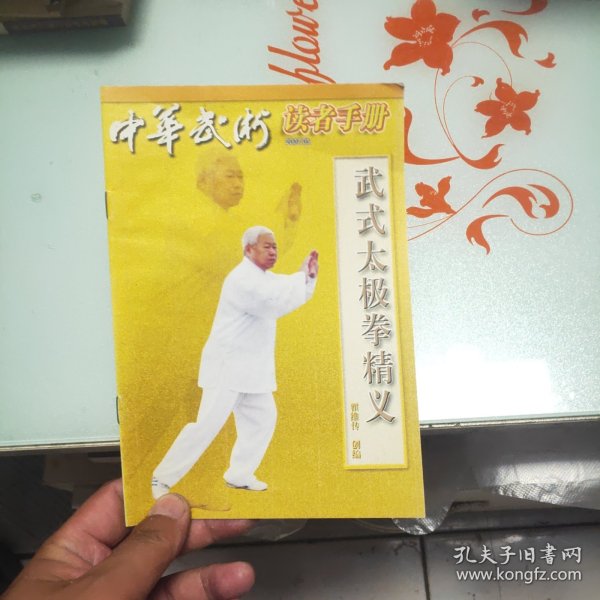 flowe
中华武术 读者手册
2007.05
武式太极拳精义
翟维传 创编
孔夫子旧书网
www.kongfz.com